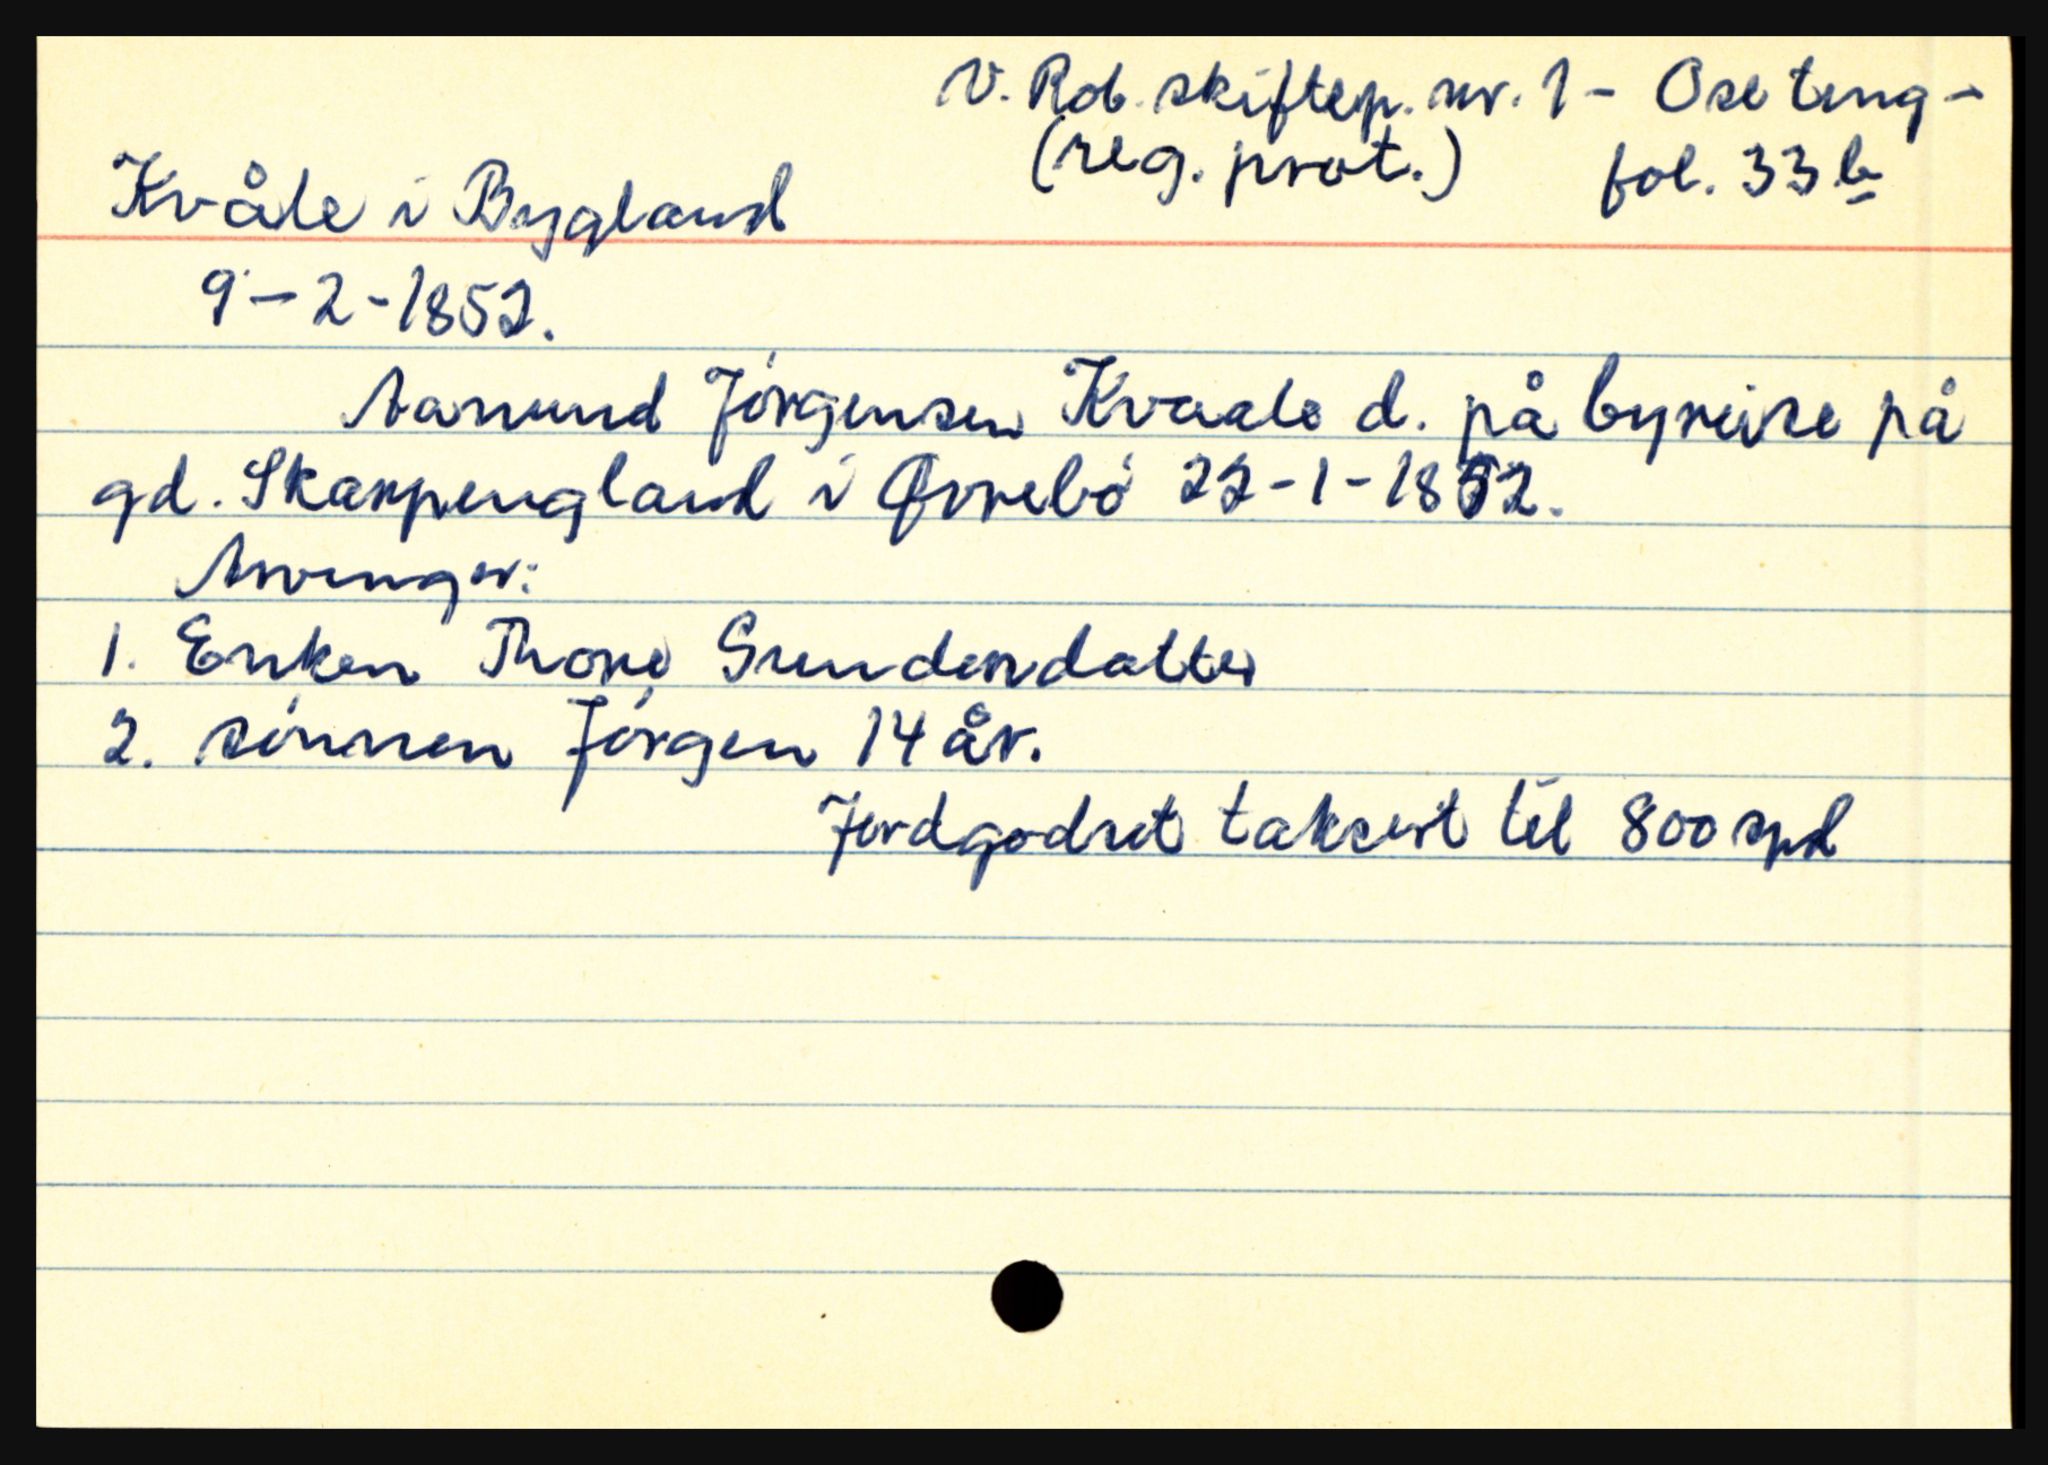 V. Rob. skiftep. nr. 1 - Ose ting -
(reg. prot.) fol. 33b
Kvåle i Bygland
9-2-1852.
Aanund Jörgensen Kvaale d. på byreise på
gd. Skarpengland i Øvrebö 22-1-1852.
Arvinger:
1. Enken Thore Gundersdatter
2. sönnen Jörgen 14 år.
Jordgodset taksert til 800 spd